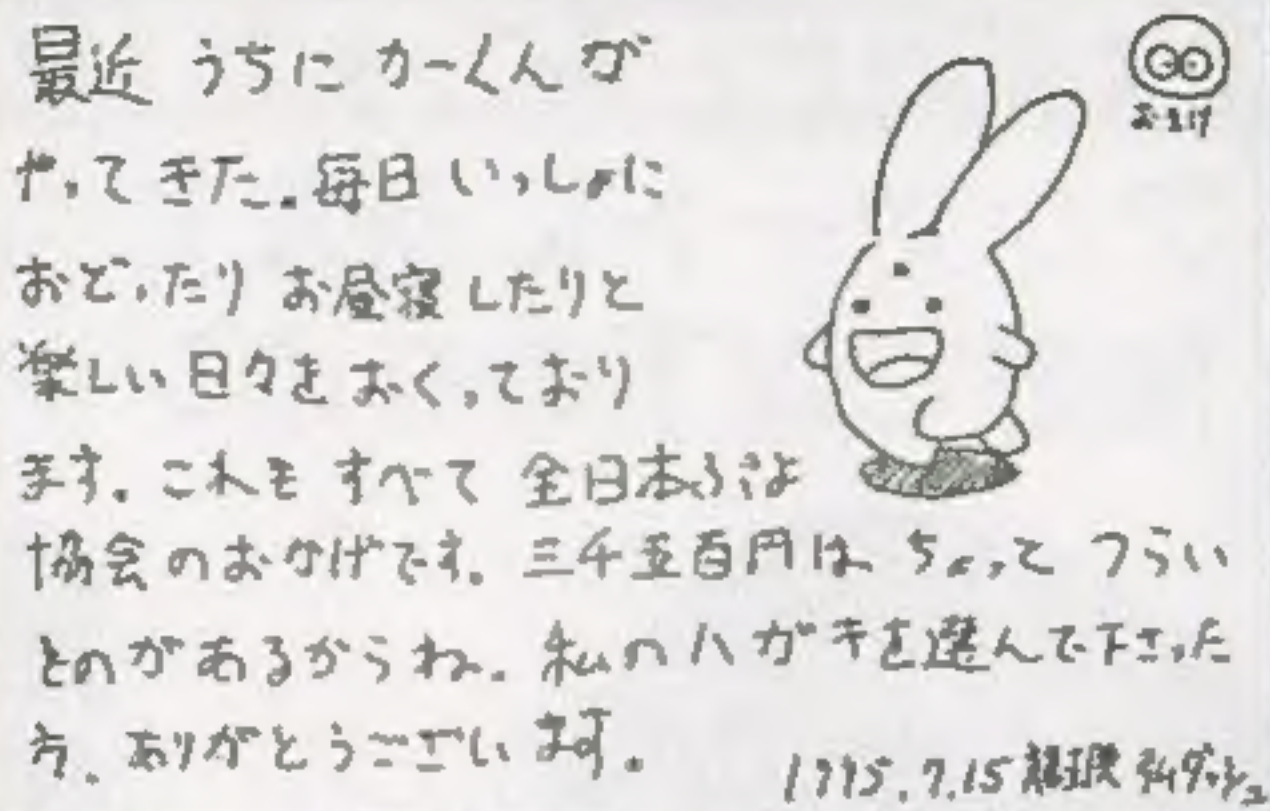 最近 うちに カーくんが
やってきた。毎日 いっしょに
おどったり お昼寝したりと
楽しい日々をおくっており
ます。これも すべて 全日本ぷよ
協会のおかげです。三千五百円は ちょっと つらい
ものがあるからね。私のハガキを選んで下さった
方、ありがとうございます。
おまけ
1995.7.15